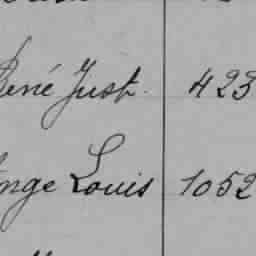 René Just. 423
Ange Louis 1052